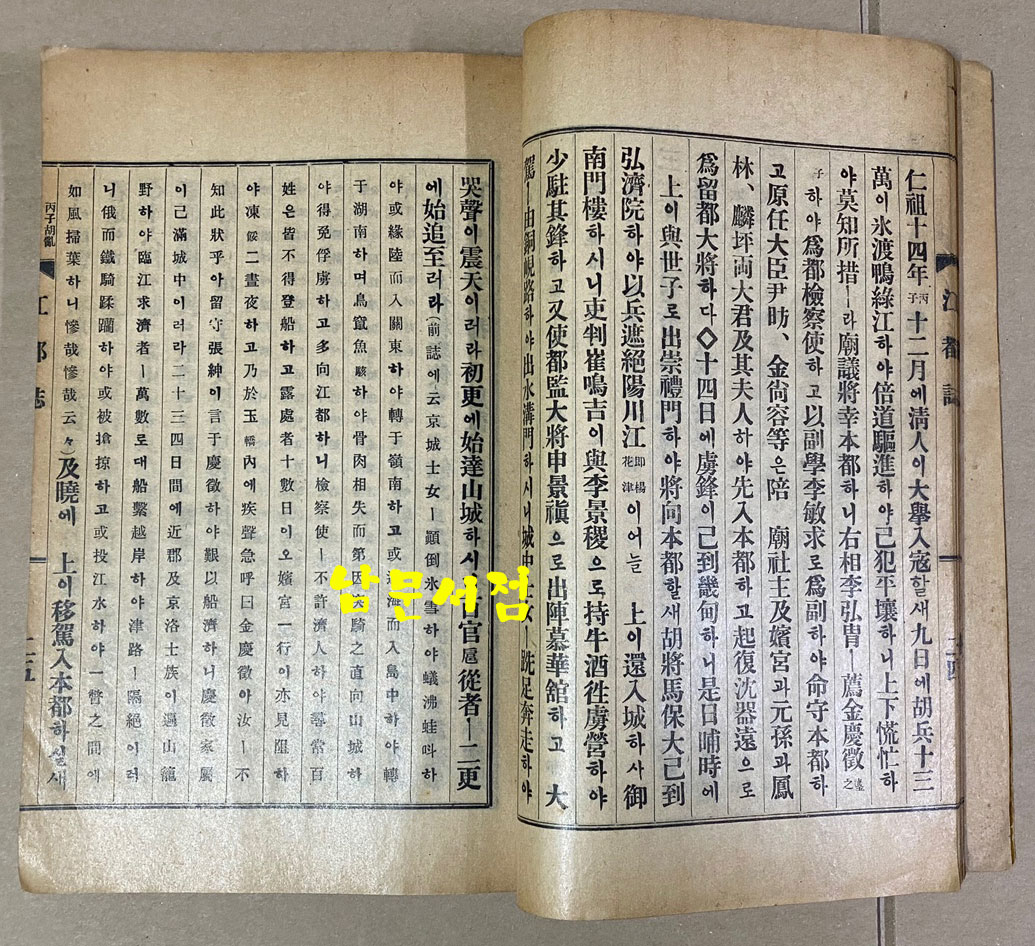 江都誌
仁祖十四年丙子十二月에淸人이大擧入寇할새九日에胡兵十三
萬이氷渡鴨綠江하야倍道驅進하야己犯平壤하니上下慌忙하
야莫知所措ㅣ라廟議將幸本都하니右相李弘冑ㅣ薦金慶徵之瑬
子하야爲都檢察使하고以副學李敏求로爲副하야命守本都하
고原任大臣尹昉、金尙容等은陪 廟社主及嬪宮과元孫과鳳
林、麟坪両大君及其夫人하야先入本都하고起復沈器遠으로
爲留都大將하다◇十四日에虜鋒이己到畿甸하니是日晡時에
上이與世子로出崇禮門하야將向本都할새胡將馬保大己到
弘濟院하야以兵遮絕陽川江卽楊花津이어늘 上이還入城하사御
南門樓하시니吏判崔鳴吉이與李景稷으로持牛酒徃虜營하야
少駐其鋒하고又使都監大將申景禛으로出陣慕華舘하고 大
駕ㅣ由銅峴路하야出水溝門하시니城中士女ㅣ跣足奔走하야
哭聲이震天이러라初更에始達山城하시 官扈從者ㅣ二更
에始追至러라(前誌에云京城士女ㅣ顚倒氷雪하야蟻沸蛙叫하
야或緣陸而入關東하야轉于嶺南하고或 海而入島中하야轉
于湖南하며鳥竄魚駭하야骨肉相失而第因 騎之直向山城하
야得免俘虜하고多向江都하니檢察使ㅣ不許濟人하야尋常百
姓은皆不得登船하고露處者十數日이오嬪宮一行이亦見阻하
야凍餒二晝夜하고乃於玉轎內에疾聲急呼曰金慶徵아汝ㅣ不
知此狀乎아留守張紳이言于慶徵하야艱以船濟하니慶徵家屬
이己滿城中이러라二十三四日間에近郡及京洛士族이遍山籠
野하야臨江求濟者ㅣ萬數로대船繫越岸하야津路ㅣ隔絕이러
니俄而鐵騎蹂躪하야或被搶掠하고或投江水하야一瞥之間에
如風掃葉하니慘哉慘哉云々)及曉에 上이移駕入本都하실새
丙子胡亂
江都誌
二五
남문서점